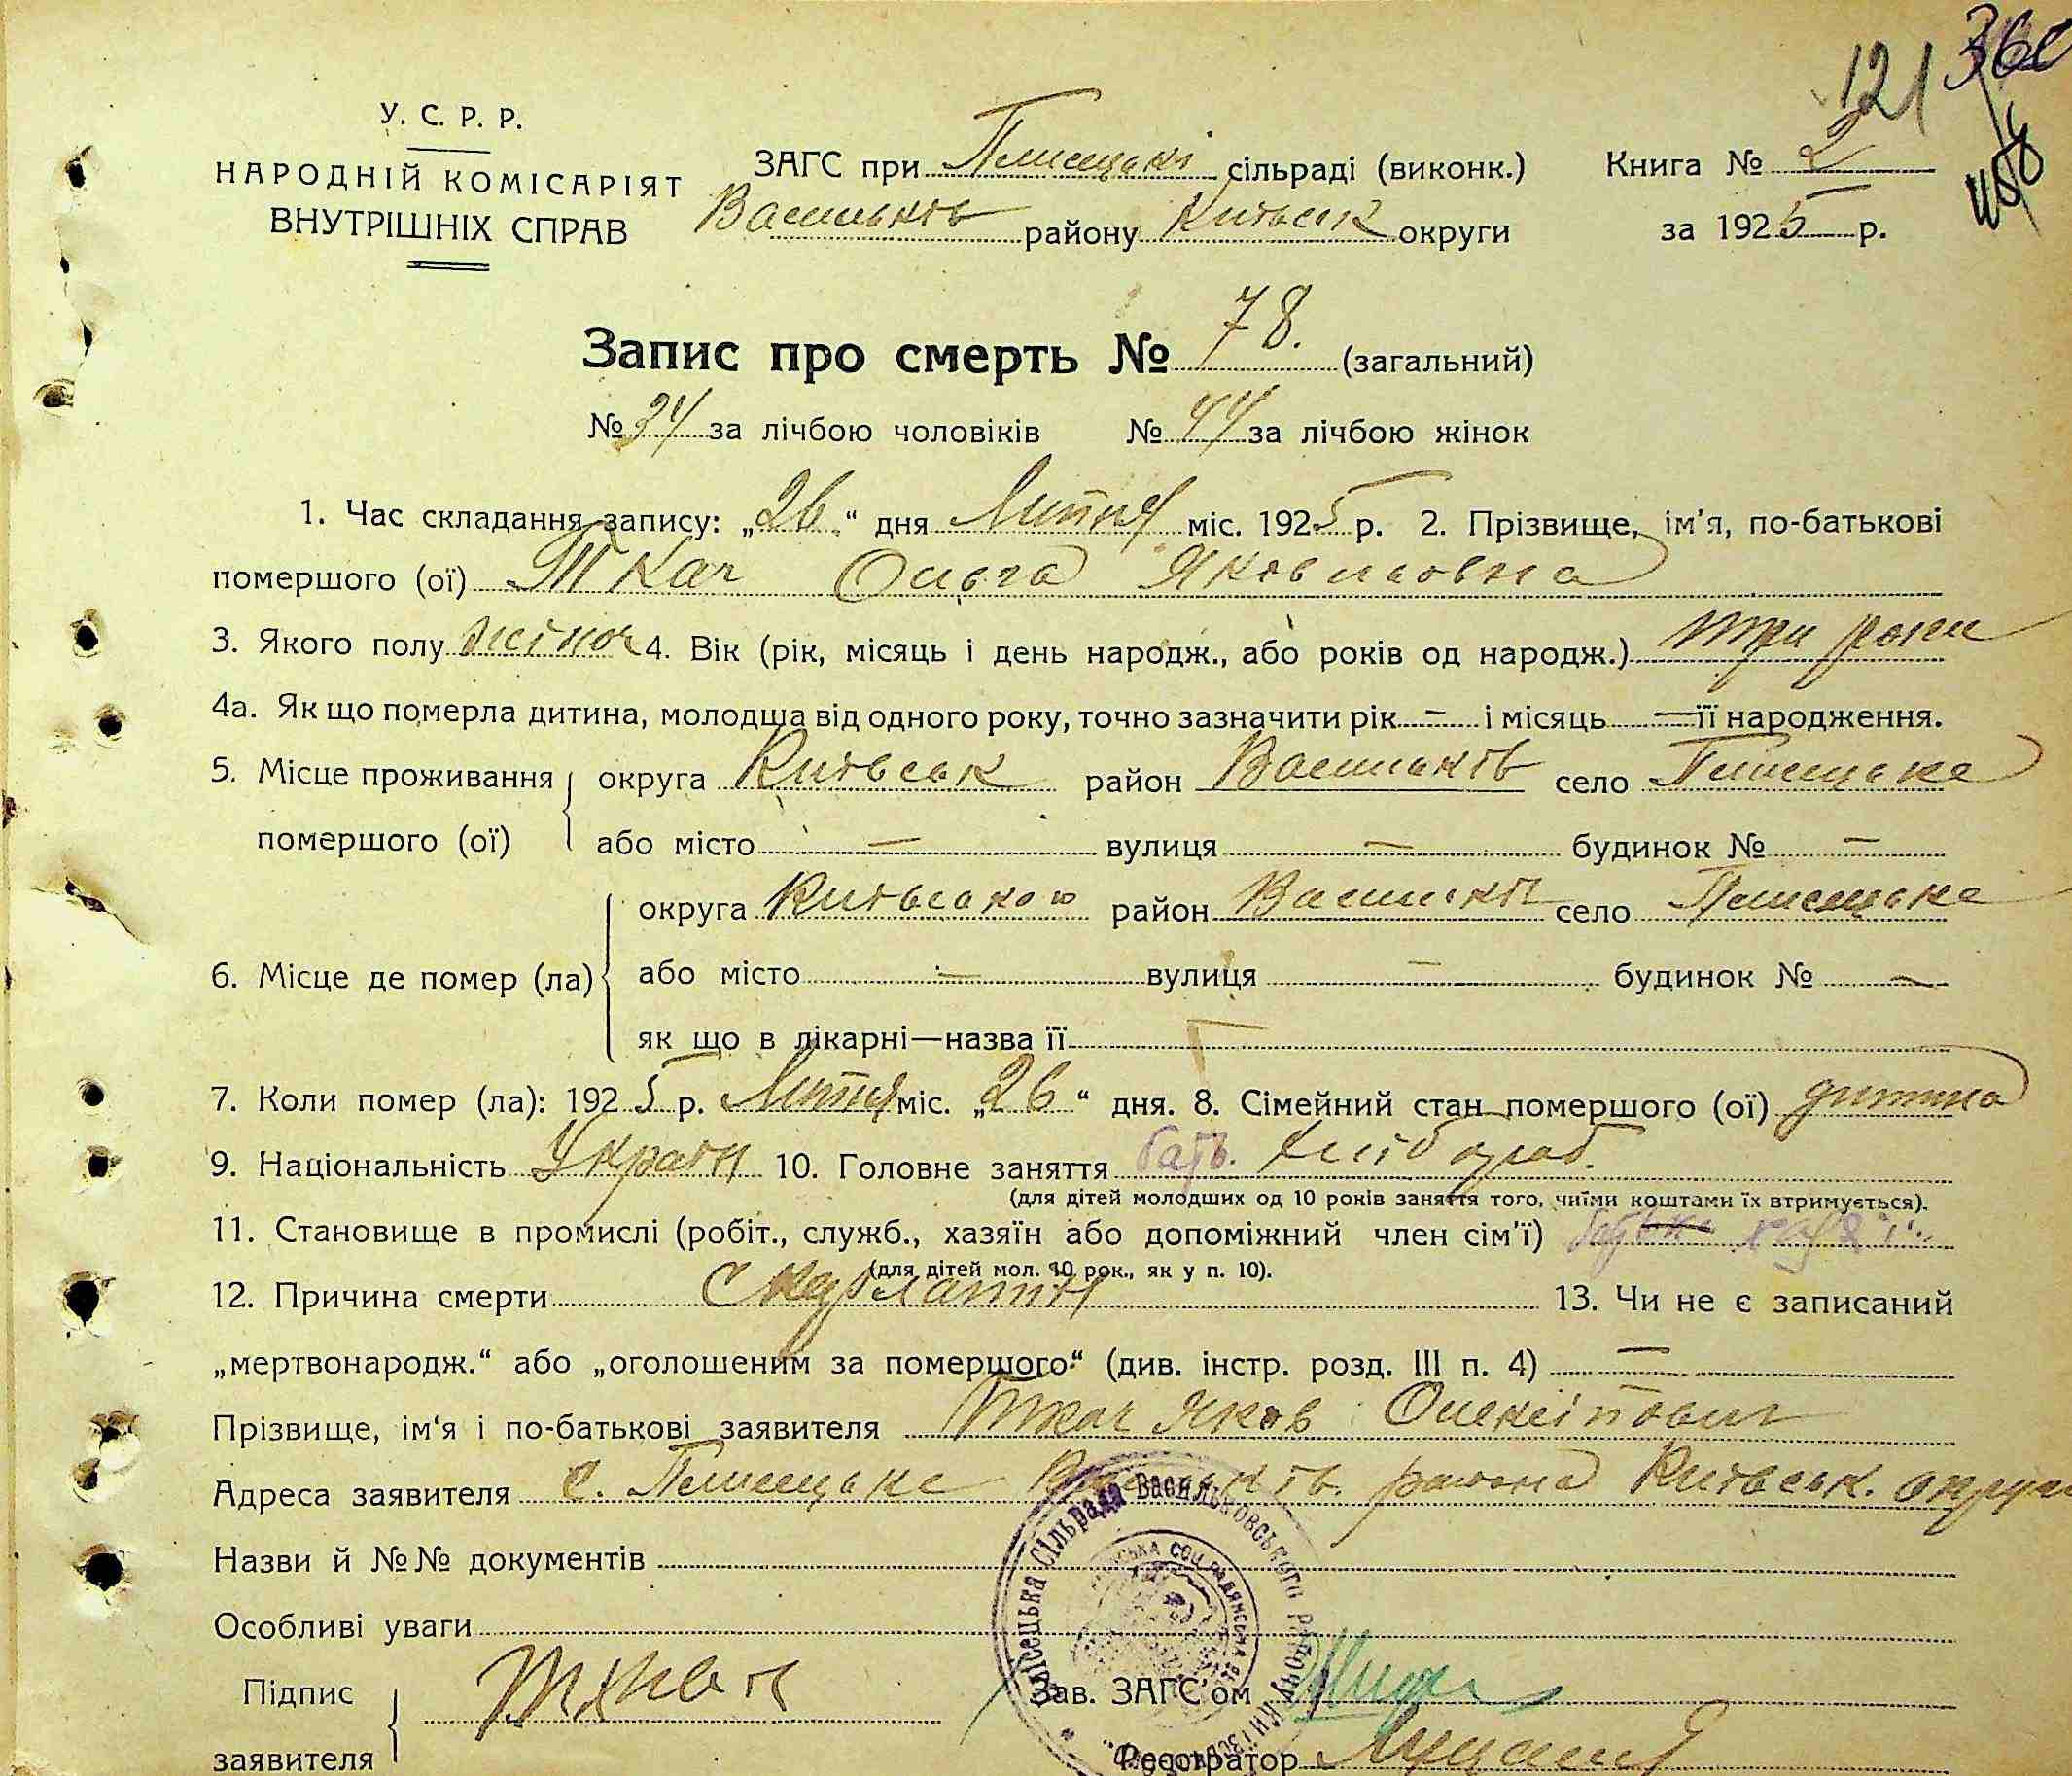 121 360
У. С. Р. Р.
НАРОДНІЙ КОМІСАРІЯТ
ВНУТРІШНІХ СПРАВ
ЗАГС при Плисецькі сільраді (виконк.) Книга № 2
Васильків району Київськ округи за 1925 р.
Запис про смерть № 78. (загальний)
№ 34 за лічбою чоловіків № 44 за лічбою жінок
1. Час складання запису: „26“ дня Липня міс. 1925 р. 2. Прізвище, ім'я, по-батькові
помершого (ої) Ткач Ольга Яковльовна
3. Якого полу жіноч 4. Вік (рік, місяць і день народж., або років од народж.) три роки
4а. Як що померла дитина, молодша від одного року, точно зазначити рік — і місяць — її народження.
5. Місце проживання помершого (ої) округа Київськ район Васильків село Плисецьке
або місто — вулиця — будинок № —
6. Місце де помер (ла) округа Київською район Васильків село Плисецьке
або місто — вулиця — будинок № —
як що в лікарні—назва її
7. Коли помер (ла): 1925 р. Липня міс. „26“ дня. 8. Сімейний стан помершого (ої) дитина
9. Національність Украін 10. Головне заняття бать. хлібороб.
(для дітей молодших од 10 років заняття того, чиїми коштами їх втримується).
11. Становище в промислі (робіт., служб., хазяїн або допоміжний член сім'ї)
(для дітей мол. 10 рок., як у п. 10).
12. Причина смерти Скарлатин 13. Чи не є записаний
„мертвонародж.“ або „оголошеним за помершого“ (див. інстр. розд. III п. 4) —
Прізвище, ім'я і по-батькові заявителя Ткач Яков
Адреса заявителя с. Плисецьке Васильків. района Київськ. округи
Назви й №№ документів
Особливі уваги
Підпис заявителя
Зав. ЗАГС'ом
Реєстратор